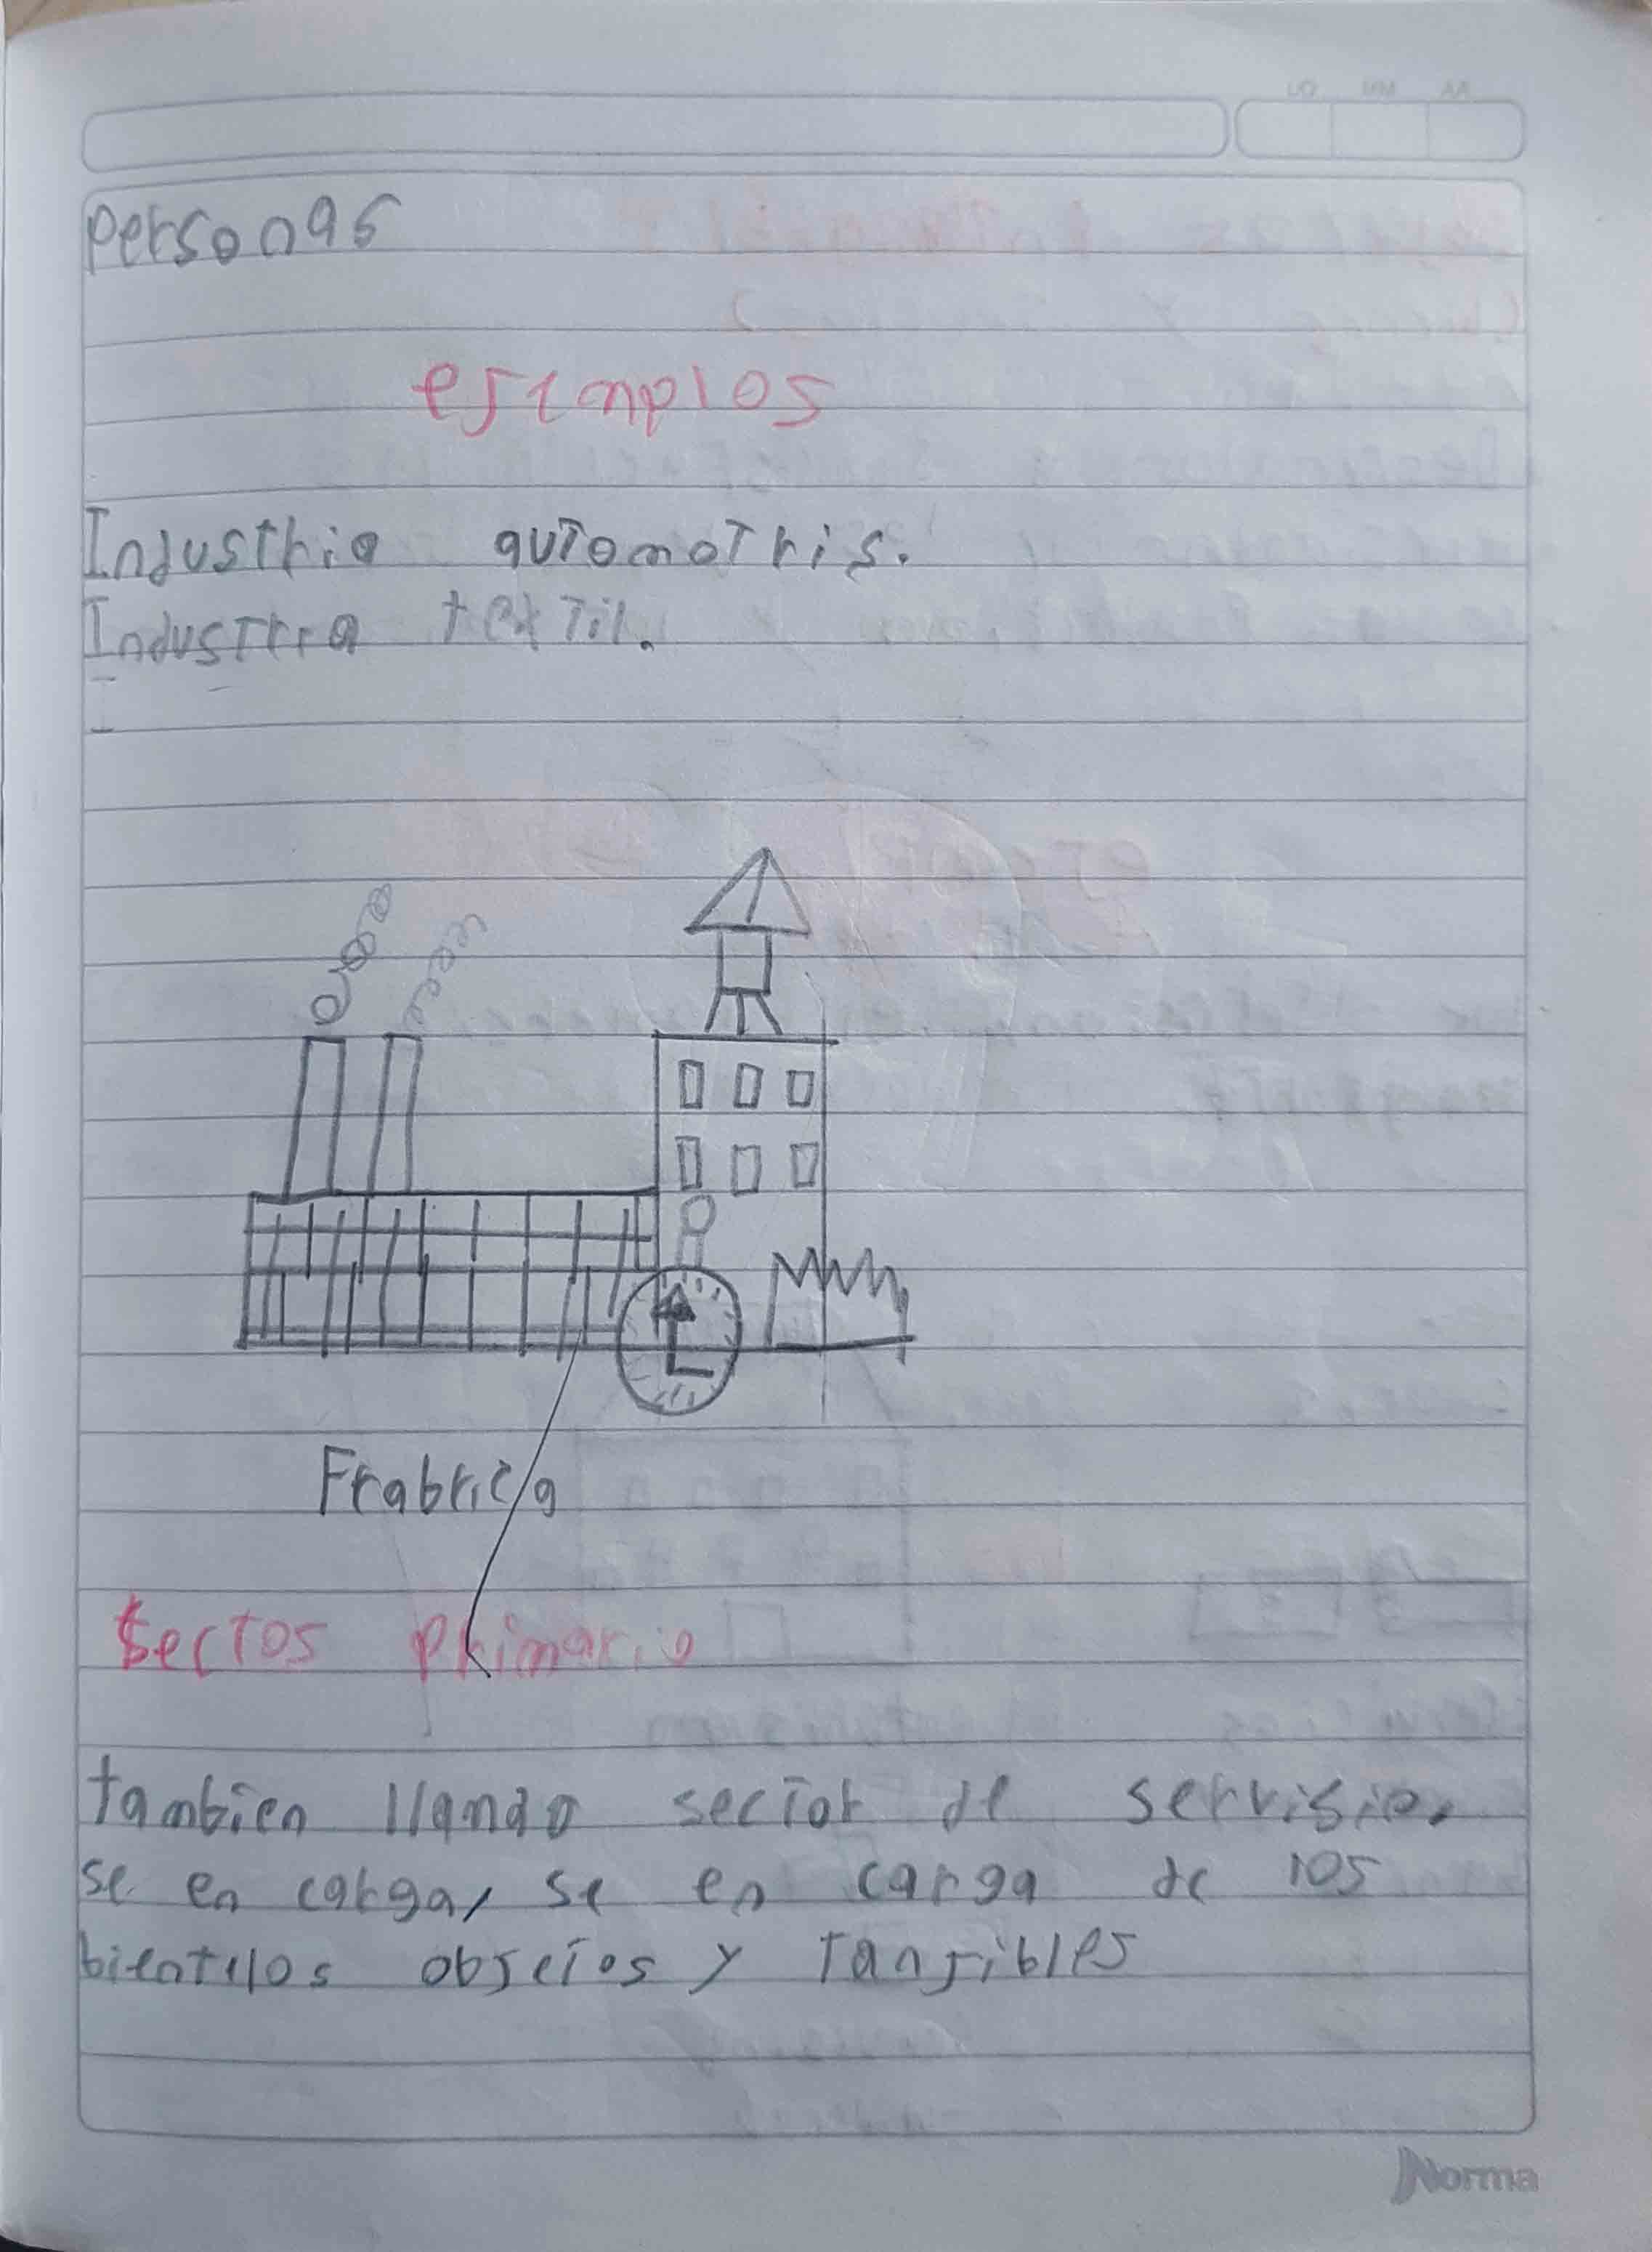 personas
ejemplos
Industria automotris.
Industria textil.
Frabrica
Sectos primario
tambien llamdo sector de servisio,
se en carga, se en carga de los
objetos y tanjibles
Norma